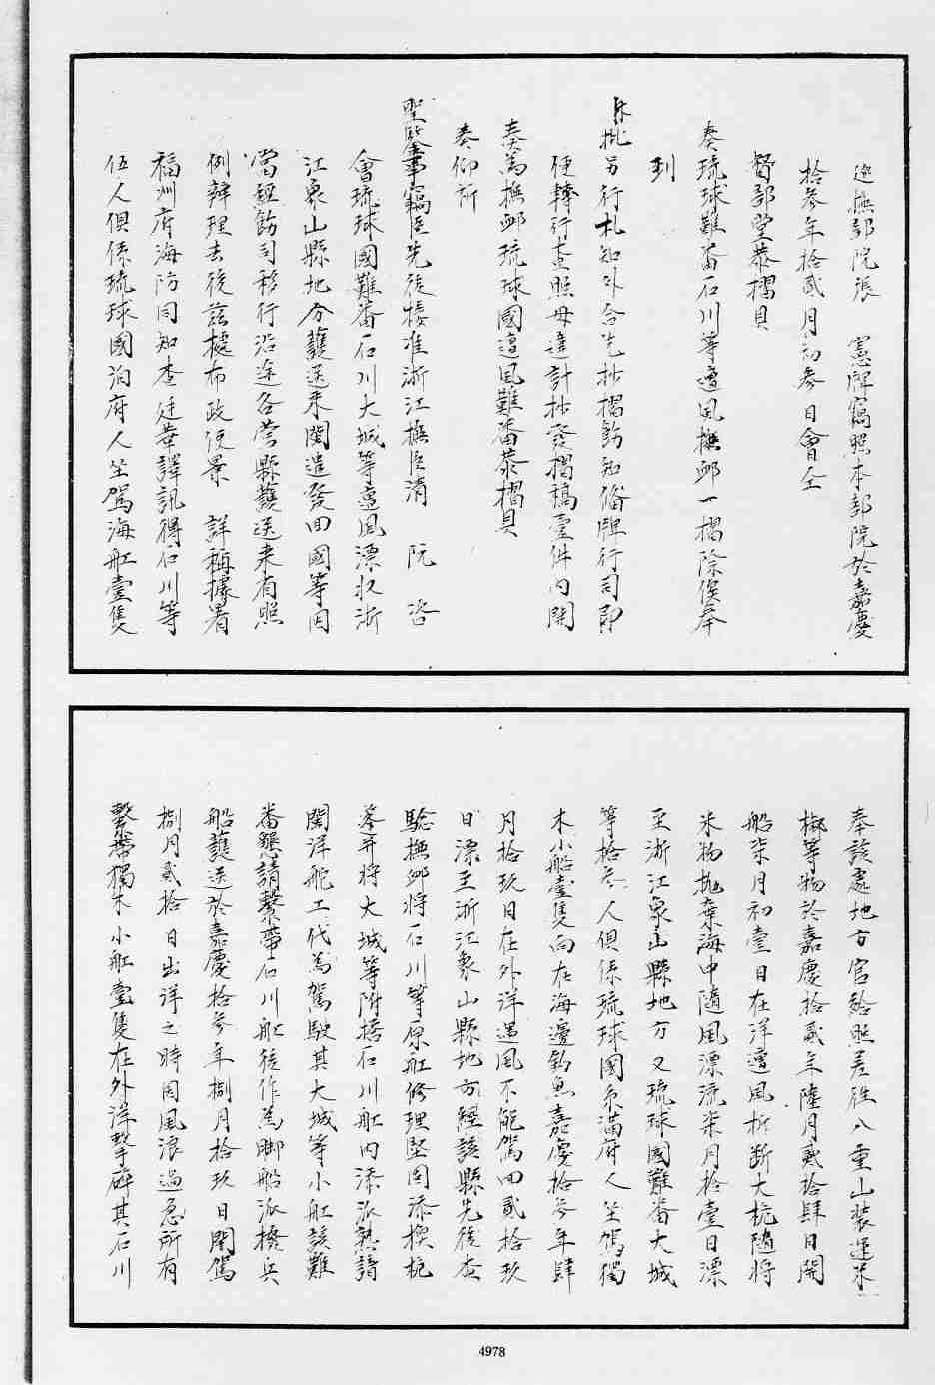 巡撫部院張　憲牌寫照本部院於嘉慶
拾參年拾貳月初參日會全
督部堂恭摺具
奏琉球難番石川等遭風撫卹一摺除俟奉
到
硃批另行札知外合先抄摺飭知備牌行司即
便轉行查照毋違計抄發摺稿壹件內開
奏為撫卹琉球國遭風難番恭摺具
奏仰祈
聖鑒事竊臣先後接准浙江撫臣清　阮　咨
會琉球國難番石川大城等遭風漂收浙
江象山縣地方護送來閩遣發回國等因
當經飭司移行沿途各營縣護送來省照
例辦理去後茲據布政使景　詳稱據署
福州府海防同知查廷華譯訊得石川等
伍人俱係琉球國泊府人坐駕海舡壹隻
奉該處地方官給照差往八重山裝運米
椒等物於嘉慶拾貳年陸月貳拾肆日開
船柒月初壹日在洋遭風折斷大桅隨將
米物拋棄海中隨風漂流柒月拾壹日漂
至浙江象山縣地方又琉球國難番大城
等拾參人俱係琉球國糸滿府人坐駕獨
木小船壹隻向在海邊釣魚嘉慶拾參年肆
月拾玖日在外洋遇風不能駕回貳拾玖
日漂至浙江象山縣地方經該縣先後查
驗撫卹將石川等原舡修理堅固添換桅
篷并將大城等附搭石川舡內添派熟諳
閩洋舵工代為駕駛其大城等小舡該難
番懇請繫帶石川舡後作為腳船派撥兵
船護送於嘉慶拾參年捌月拾玖日開駕
捌月貳拾日出洋之時因風浪過急所有
繫帶獨木小舡壹隻在外洋擊碎其石川
4978